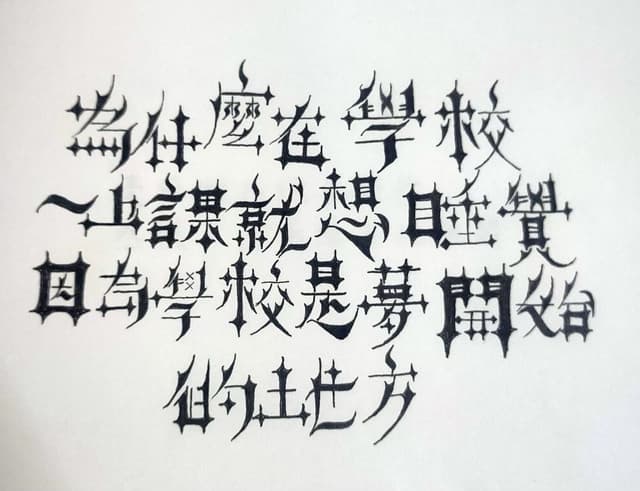 為什麼在學校
一上課就想睡覺
因為學校是夢開始
的地方